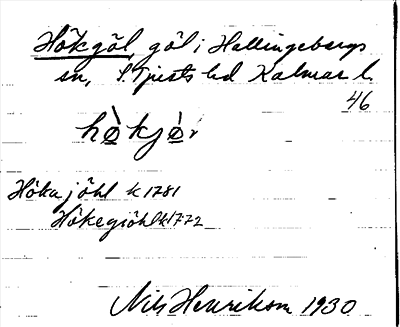 Hökgöl, göl i Hallingebergs
sn, S. Tjusts hd Kalmar l.
46
Höka jöhl k 1781
Hökegiöhl k 1772
Nils Henrikson 1930